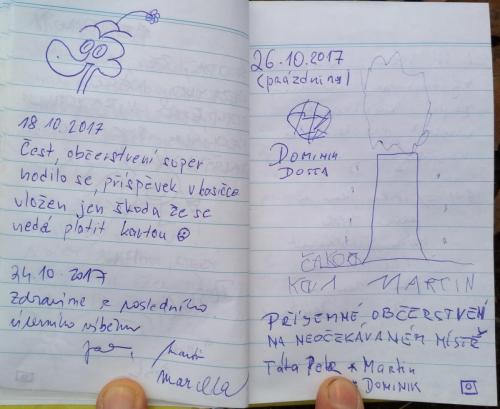 18 10. 2017
Čest, občerstvení super
hodilo se, příspěvek v kasičce
vložen jen škoda že se
nedá platit kartou
24.10.2017
Zdravíme z posledního
Martin
Marcela
26.10.2017
(prázdniny)
DOMINIK
MARTIN
PŘÍJEMNÉ OBČERSTVENÍ
NA NEOČEKÁVANÉM MÍSTĚ
Táta Petr * Martin
* DOMINIK